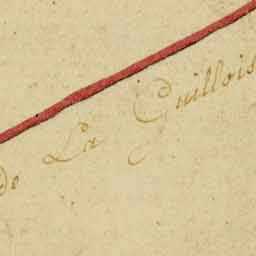 de La Guillois